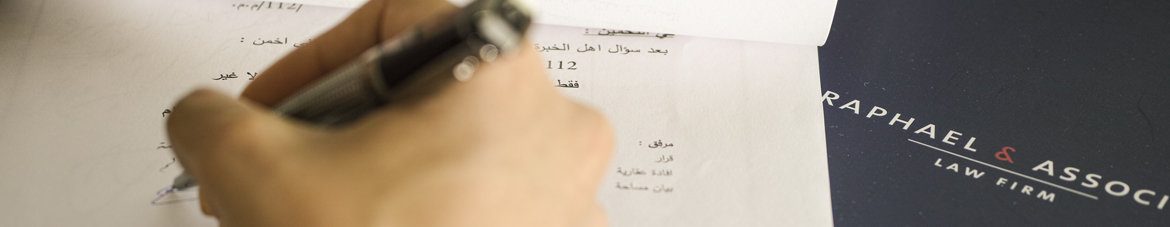 /112/م.م.
في التخمين :
بعد سؤال اهل الخبرة اخمن :
112
فقط لا غير
مرفق :
قرار
افادة عقارية
بيان مساحة
RAPHAEL & ASSOCI
LAW FIRM